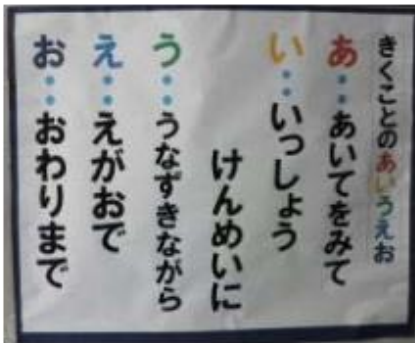 きくことのあいうえお
あ・・あいてをみて
い・・いっしょう
けんめいに
う・・うなずきながら
え・・えがおで
お・・おわりまで